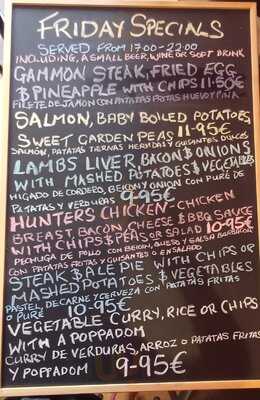 FRIDAY SPECIALS
SERVED FROM 17:00-22:00
INCLUDING, A SMALL BEER, WINE OR SOFT DRINK
GAMMON STEAK, FRIED EGG
& PINEAPPLE WITH CHIPS 11-50€
FILETE DE JAMON CON PATATAS FRITAS HUEVO Y PINA
SALMON, BABY BOILED POTATOES,
SWEET GARDEN PEAS 11-95€
SALMON, PATATAS TIERNAS HERVIDAS Y GUISANTES DULCES
LAMBS LIVER, BACON & ONIONS
WITH MASHED POTATOES & VEGETABLES
HIGADO DE CORDERO, BEICON Y ONION CON PURE DE
PATATAS Y VERDURAS 9-95€
HUNTERS CHICKEN-CHICKEN
BREAST, BACON CHEESE & BBQ SAUCE
WITH CHIPS & PEAS OR SALAD 10-95€
PECHUGA DE POLLO CON BEICON, QUESO Y SALSA BARBACOA
CON PATATAS FRITAS Y GUISANTES O ENSALADA
STEAK & ALE PIE WITH CHIPS OR
MASHED POTATOES & VEGETABLES
PASTEL DE CARNE Y CERVEZA CON PATATAS FRITAS
O PURE 10-95€
VEGETABLE CURRY, RICE OR CHIPS
WITH A POPPADOM
CURRY DE VERDURAS, ARROZ O PATATAS FRITAS
Y POPPADOM 9-95€